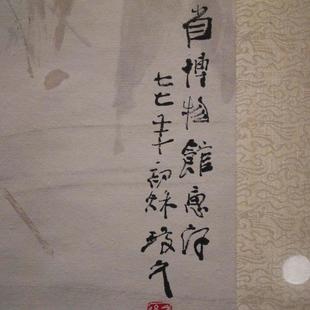 省博物館惠存
七七年初秋